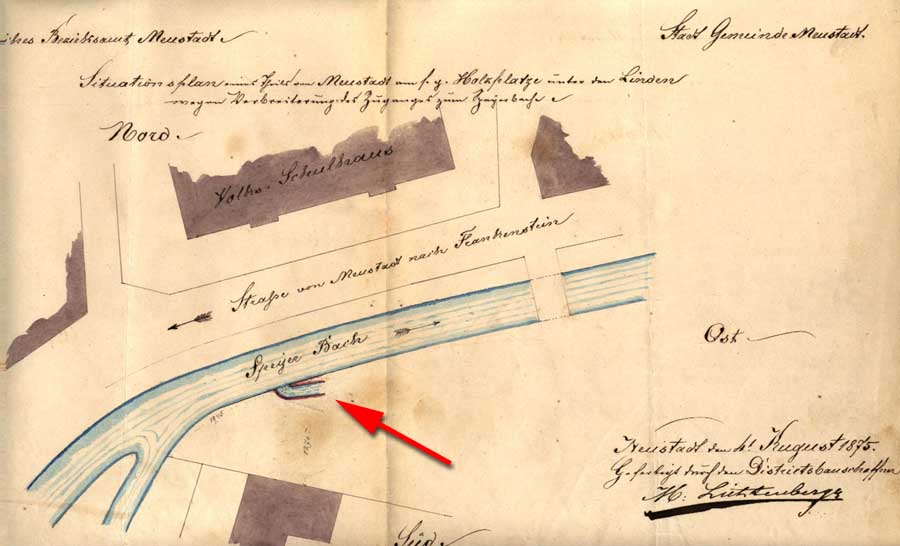 iches Bezirksamt Neustadt.
Stadt Gemeinde Neustadt.
Situationsplan eines Theils von Neustadt am s. g. Holzplatze unter den Linden
wegen Verbreiterung des Zuganges zum Speyerbache
Nord.
Volks-Schulhaus
Straße von Neustadt nach Frankenstein
Speyer Bach
Ost
Neustadt den 4t August 1875.
Gefertigt durch den Districtsbauschaffner
Süd.